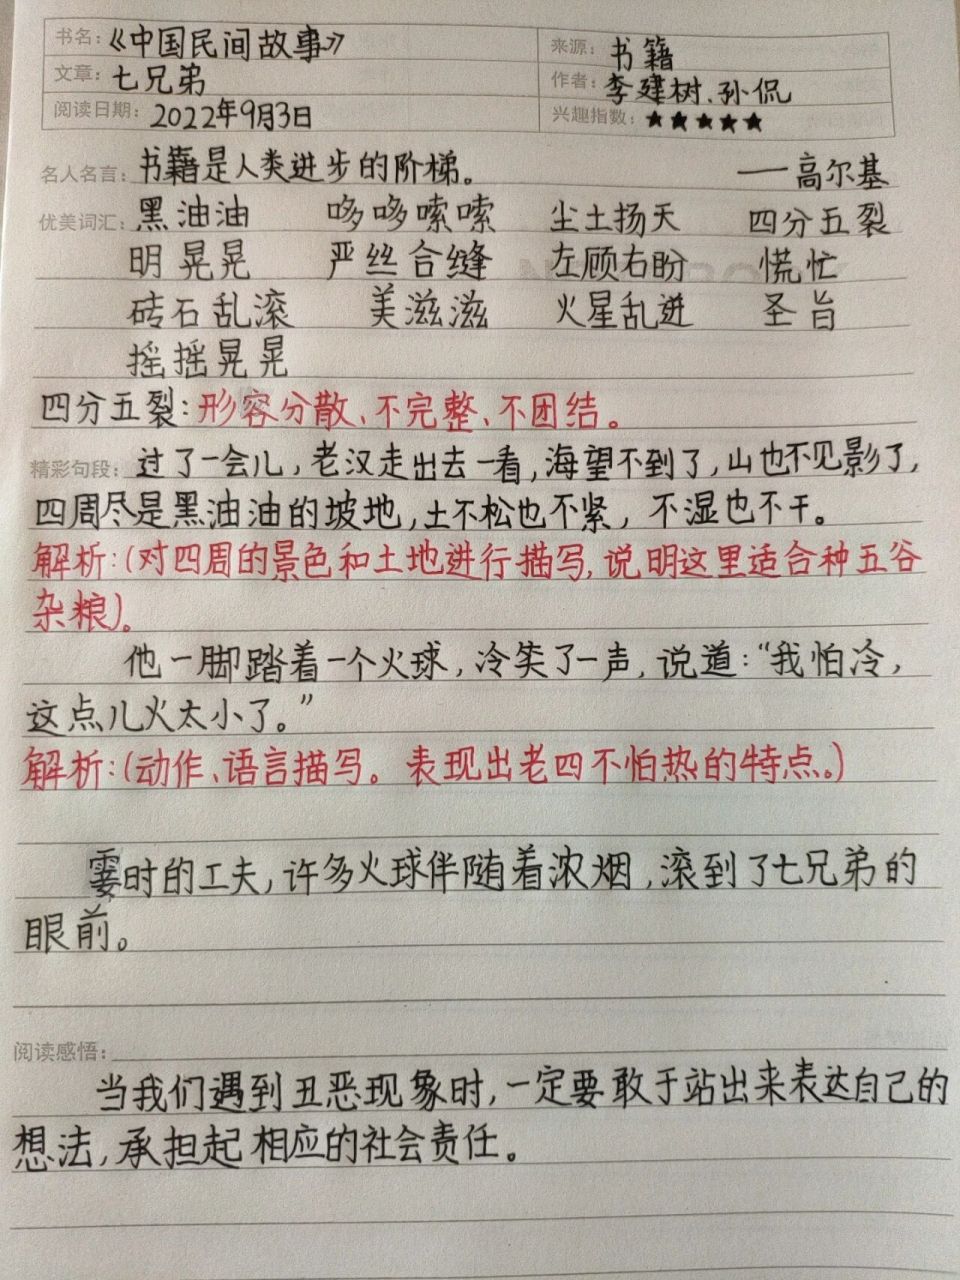 书名：《中国民间故事》 来源：书籍
文章：七兄弟 作者：李建树、孙侃
阅读日期：2022年9月3日 兴趣指数：★★★★★
名人名言：书籍是人类进步的阶梯。 ——高尔基
优美词汇：黑油油 哆哆嗦嗦 尘土扬天 四分五裂
明晃晃 严丝合缝 左顾右盼 慌忙
砖石乱滚 美滋滋 火星乱迸 圣旨
摇摇晃晃
四分五裂：形容分散、不完整、不团结。
精彩句段：过了一会儿，老汉走出去一看，海望不到了，山也不见影了，
四周尽是黑油油的坡地，土不松也不紧，不湿也不干。
解析：（对四周的景色和土地进行描写，说明这里适合种五谷
杂粮）。
他一脚踏着一个火球，冷笑了一声，说道：“我怕冷，
这点儿火太小了。”
解析：（动作、语言描写。表现出老四不怕热的特点。）
霎时的工夫，许多火球伴随着浓烟，滚到了七兄弟的
眼前。
阅读感悟：
当我们遇到丑恶现象时，一定要敢于站出来表达自己的
想法，承担起相应的社会责任。